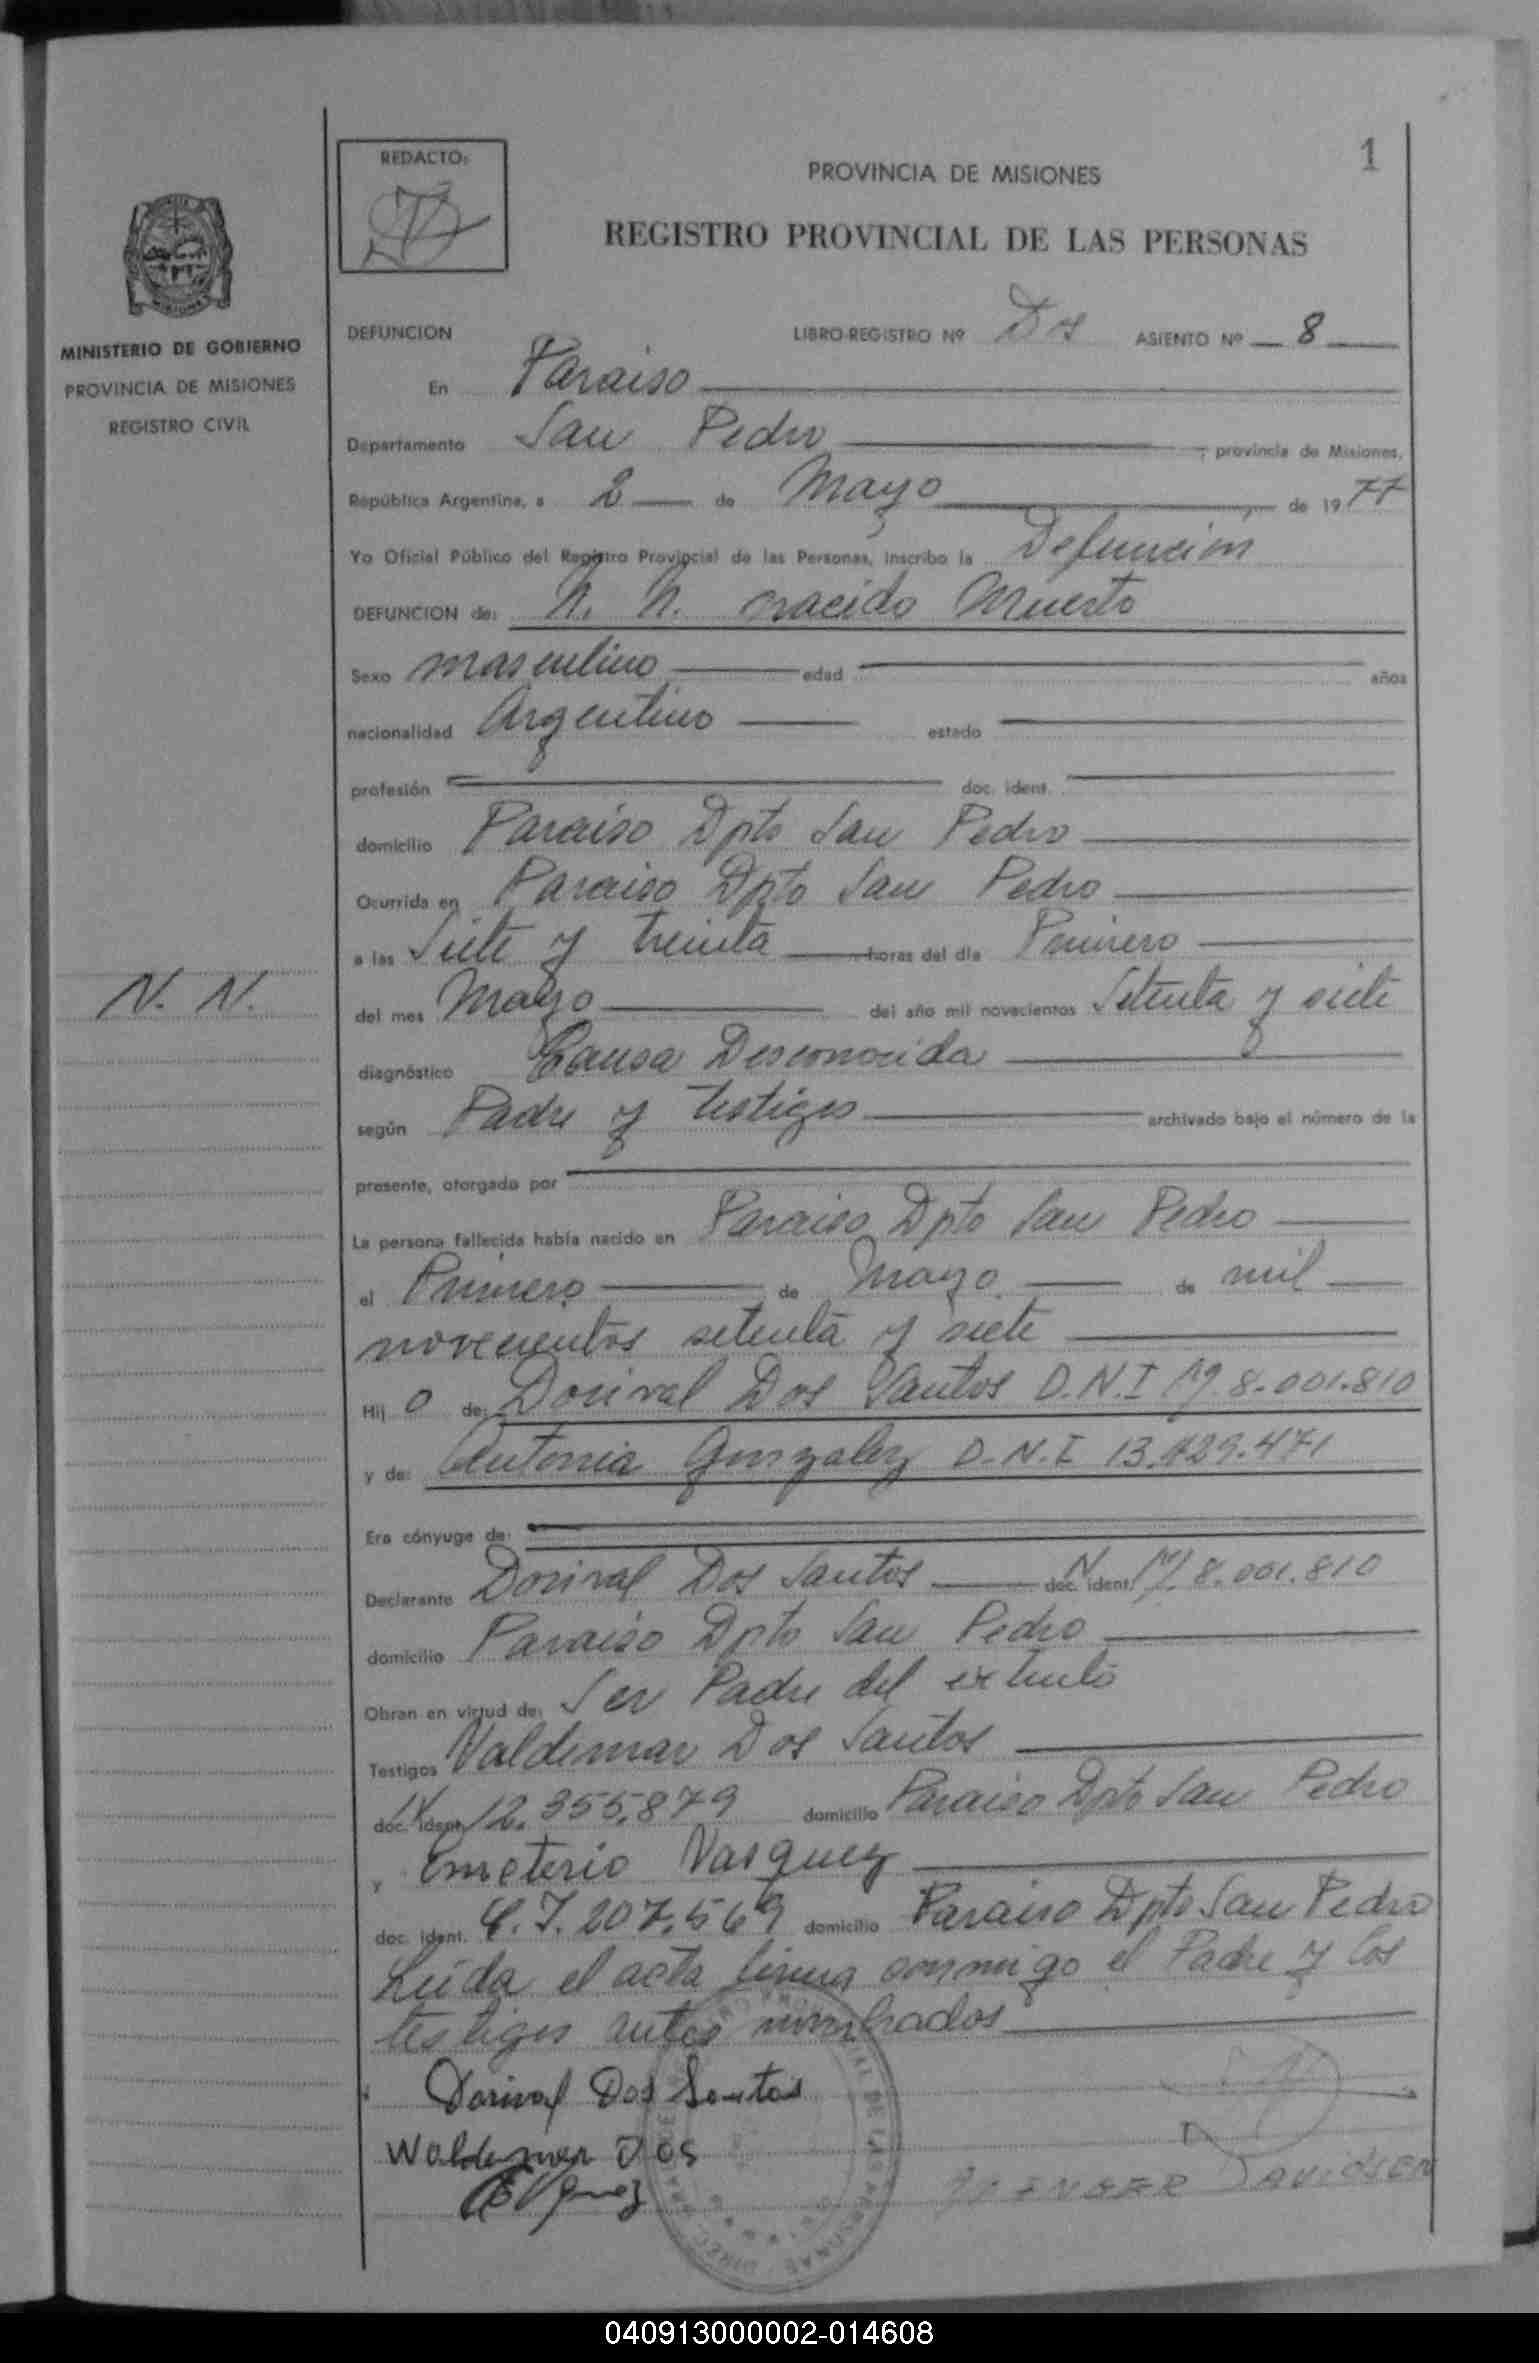 1
REDACTO:
PROVINCIA DE MISIONES
REGISTRO PROVINCIAL DE LAS PERSONAS
MINISTERIO DE GOBIERNO
PROVINCIA DE MISIONES
REGISTRO CIVIL
DEFUNCION LIBRO-REGISTRO Nº Dos ASIENTO Nº 8
En Paraiso
Departamento San Pedro, provincia de Misiones,
República Argentina, a 2 de Mayo de 1977
Yo Oficial Público del Registro Provincial de las Personas, inscribo la Defunción
DEFUNCION de: N. N. nacido Muerto
Sexo masculino edad años
nacionalidad Argentino estado
profesión doc. ident.
domicilio Paraiso Dpto San Pedro
Ocurrida en Paraiso Dpto San Pedro
a las Siete y treinta horas del día Primero
N. N.
del mes Mayo del año mil novecientos Setenta y siete
diagnóstico Causa Desconocida
según Padre y testigos archivado bajo el número de la
presente, otorgado por
La persona fallecida había nacido en Paraiso Dpto San Pedro
el Primero de Mayo de mil
novecientos setenta y siete
Hij o de: Dorival Dos Santos D.N.I M 8.001.810
y de: Antonia Gonzalez D.N.I 13.729.471
Era cónyuge de:
Declarante Dorival Dos Santos doc. ident. M 8.001.810
domicilio Paraiso Dpto San Pedro
Obran en virtud de: Ser Padre del extinto
Testigos Valdemar Dos Santos
doc. ident. 12.355.879 domicilio Paraiso Dpto San Pedro
y Emeterio Vasquez
doc. ident. C.I. 207.569 domicilio Paraiso Dpto San Pedro
Leida el acta firma conmigo el Padre y los
testigos antes nombrados
Dorival Dos Santos
Waldemar Dos
DAVIDSON
040913000002-014608